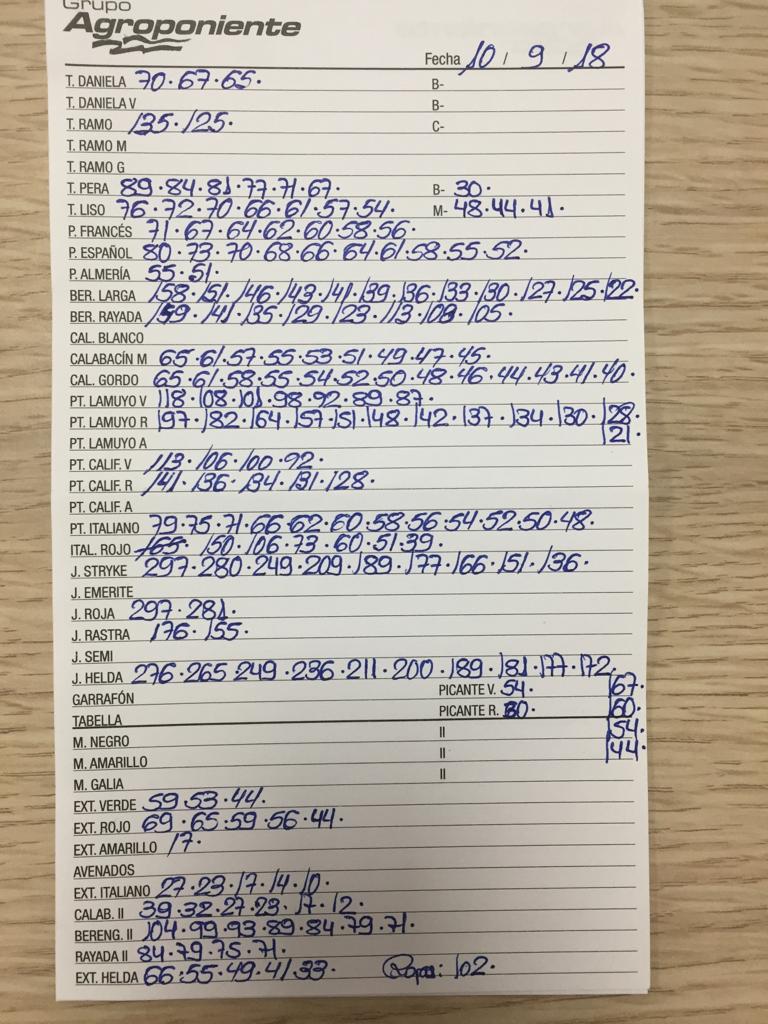 Grupo
Agroponiente
Fecha 10 / 9 / 18
T. DANIELA 70.67.65. B-
T. DANIELA V B-
T. RAMO 135.125. C-
T. RAMO M
T. RAMO G
T. PERA 89.84.81.77.71.67. B- 30.
T. LISO 76.72.70.66.61.57.54. M- 48.44.41.
P. FRANCÉS 71.67.64.62.60.58.56.
P. ESPAÑOL 80.73.70.68.66.64.61.58.55.52.
P. ALMERÍA 55.51.
BER. LARGA 158.151.146.143.141.139.136.133.130.127.125.122.
BER. RAYADA 159.141.135.129.123.113.108.105.
CAL. BLANCO
CALABACÍN M 65.61.57.55.53.51.49.47.45.
CAL. GORDO 65.61.58.55.54.52.50.48.46.44.43.41.40.
PT. LAMUYO V 118.108.101.98.92.89.87.
PT. LAMUYO R 197.182.164.157.151.148.142.137.134.130.128.
PT. LAMUYO A 121.
PT. CALIF. V 113.106.100.92.
PT. CALIF. R 141.136.134.131.128.
PT. CALIF. A
PT. ITALIANO 79.75.71.66.62.60.58.56.54.52.50.48.
ITAL. ROJO 165. 150.106.73.60.51.39.
J. STRYKE 297.280.249.209.189.177.166.151.136.
J. EMERITE
J. ROJA 297.281.
J. RASTRA 176.155.
J. SEMI
J. HELDA 276.265.249.236.211.200.189.181.177.172.
GARRAFÓN PICANTE V. 54. 167.
TABELLA PICANTE R. 80. 160.
M. NEGRO II 154.
M. AMARILLO II 144.
M. GALIA II
EXT. VERDE 59.53.44.
EXT. ROJO 69.65.59.56.44.
EXT. AMARILLO 17.
AVENADOS
EXT. ITALIANO 27.23.17.14.10.
CALAB. II 39.32.27.23.17.12.
BERENG. II 104.99.93.89.84.79.71.
RAYADA II 84.79.75.71.
EXT. HELDA 66.55.49.41.33. 102.